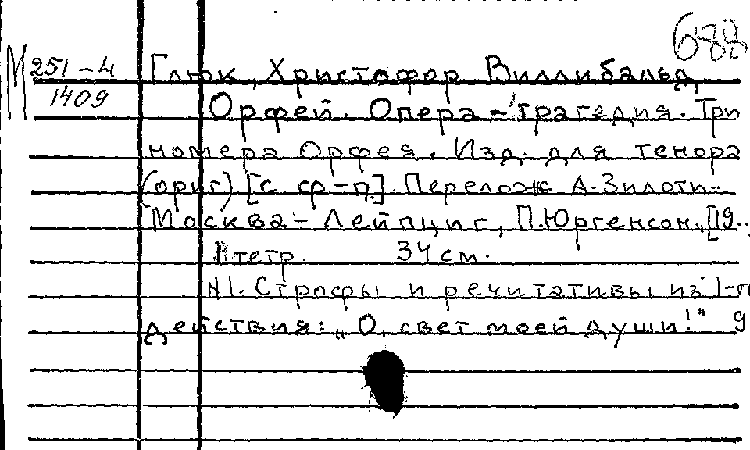 688
М 251-4 Глюк, Христофор Виллибальд.
1409 Орфей. Опера-трагедия. Три
номера Орфея. Изд. для тенора
(ориг) [с ф-п]. Перелож А. Зилоти.-
Москва-Лейпциг, П. Юргенсон, [19..
тетр. 34 см.
№1. Строфы и речитативы из 1-го
действия: "О, свет моей души!"